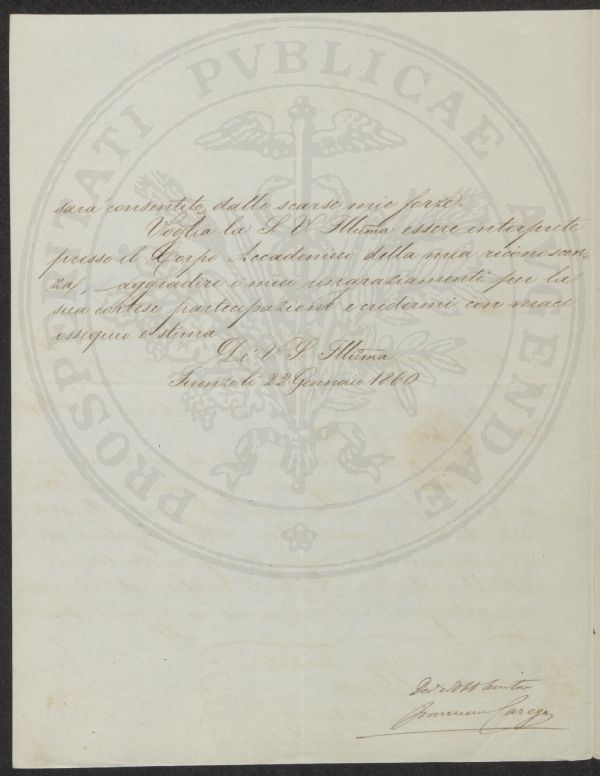 PROSPERITATI PVBLICAE AVGENDAE
sarà consentito dalle scarse mie forze.
Voglia la S. V. Illũma essere interprete
presso il Corpo Accademico della mia riconoscen-
za, aggradire i miei ringraziamenti per la
sua cortese partecipazione e credermi con verace
ossequio e stima
Di V. S. Illũma
Firenze li 22 Gennaio 1860
Dev. Obb Servitor
Francesco Carega